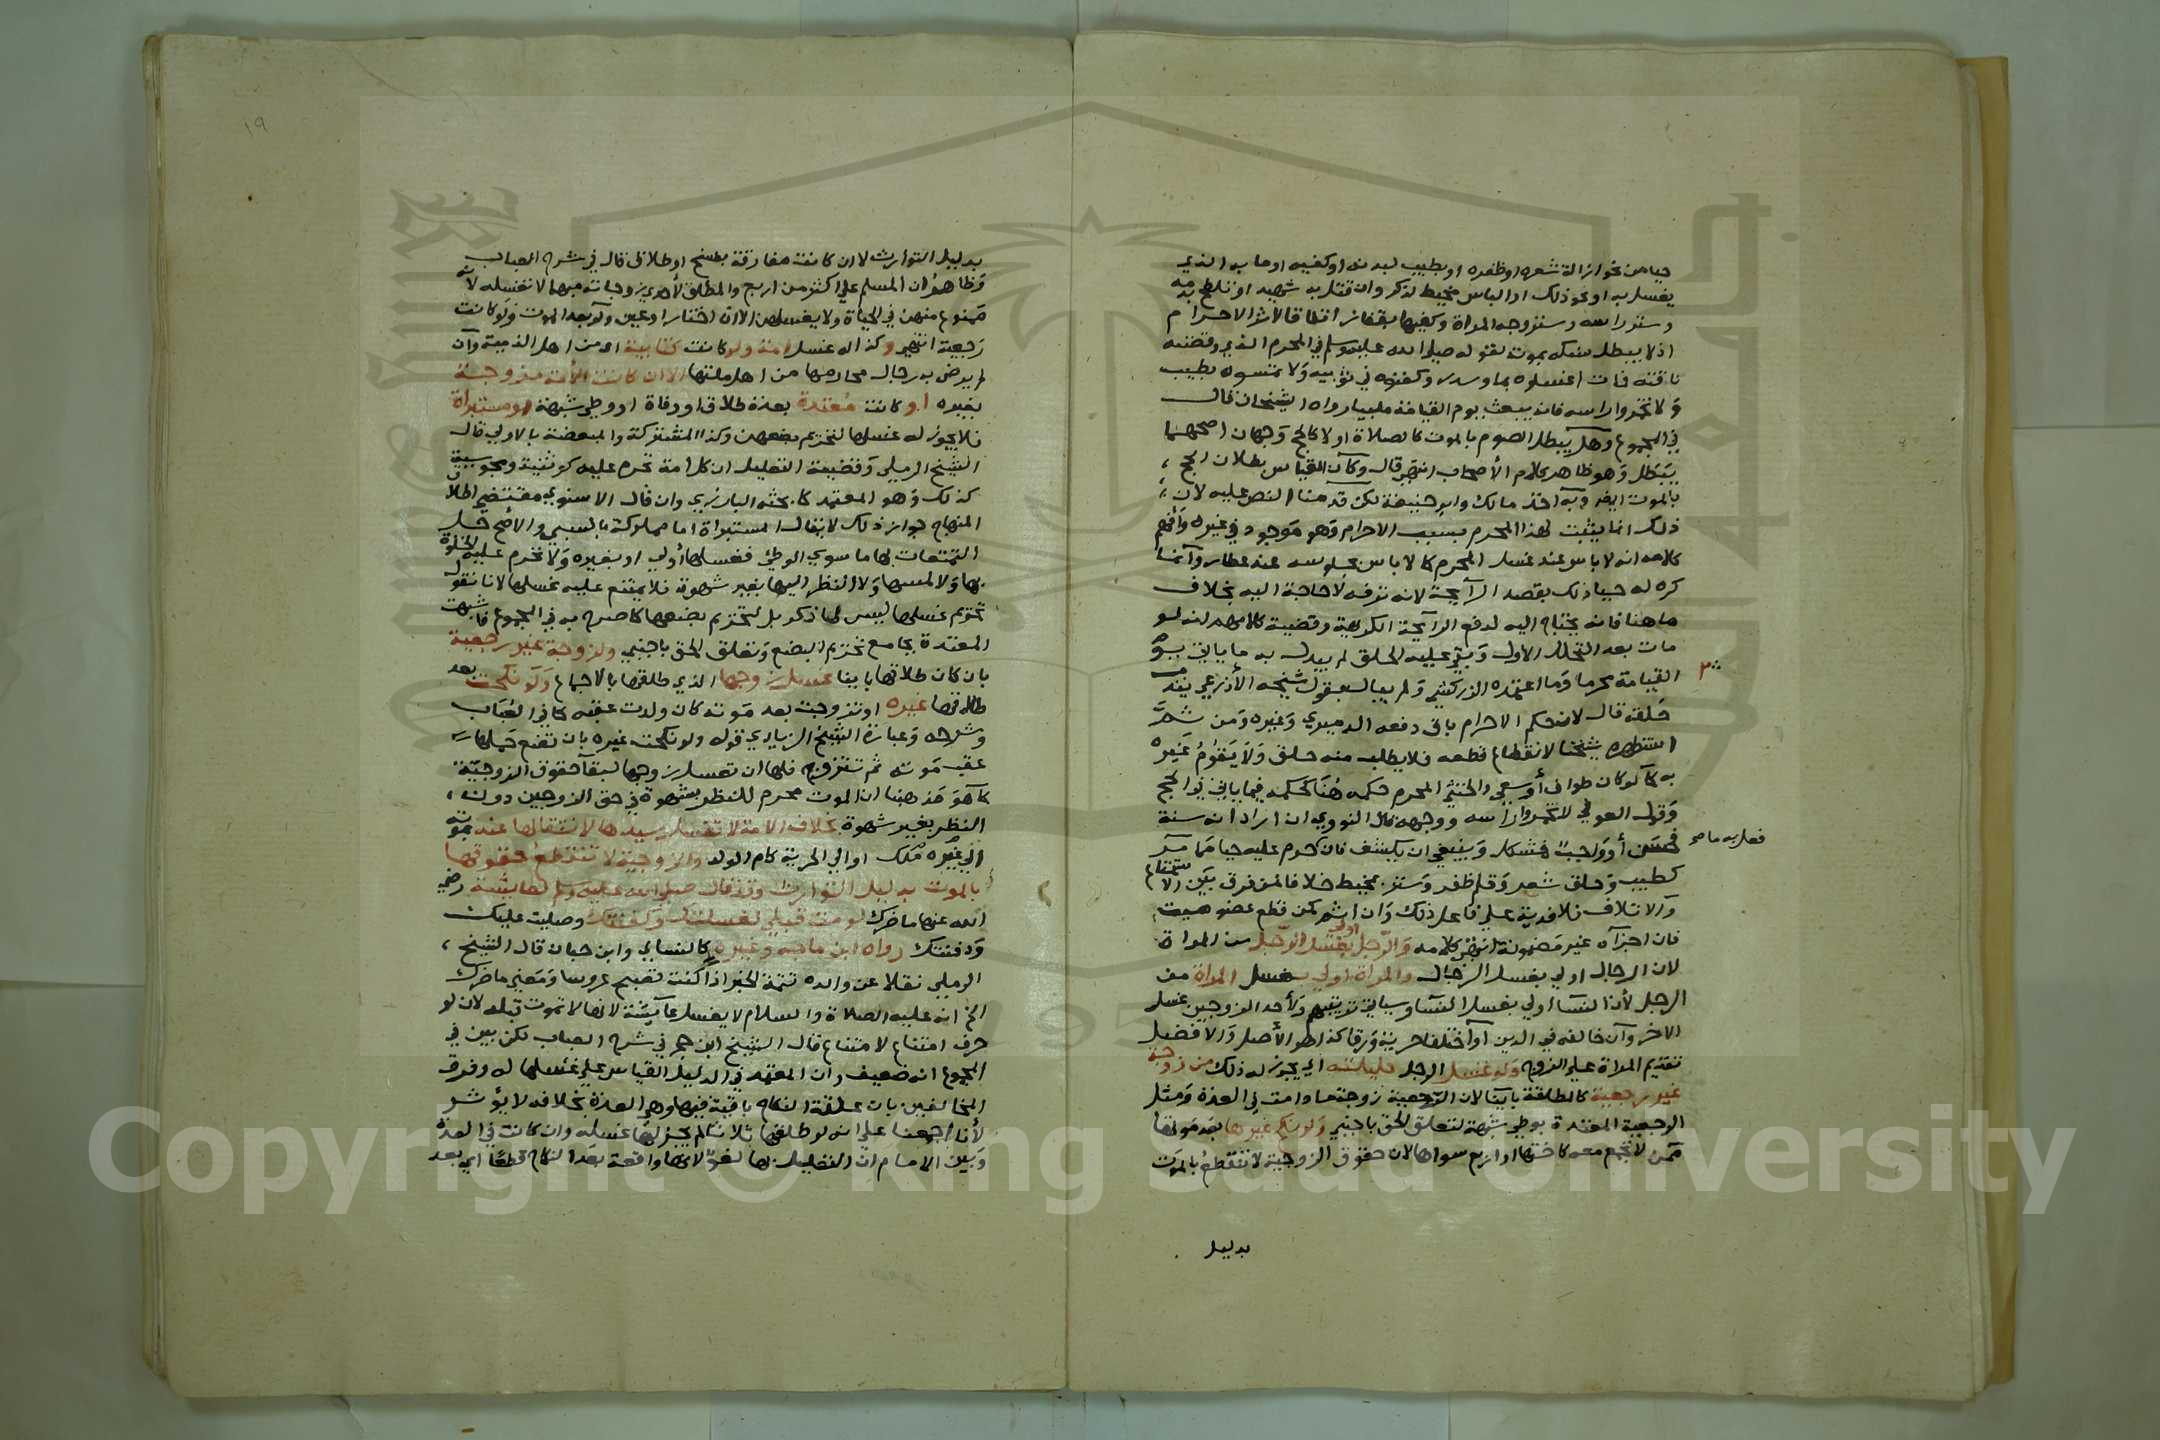 حيا من نحو ازالة شعره او ظفره او بطيب لبدنه او كفنه او ما به الذي
يغسل به او نحو ذلك او الباس مخيط لذكر وان قتل به شهيد او تلطخ بدمه
وستر راسه وستر وجه المراة وكفيها بقفازاتها لاثر الاحرام
اذ لا يبطل نسكه بموت لقوله صلى الله عليه وسلم في المحرم الذي وقصته
ناقته فمات اغسلوه بماء وسدر وكفنوه في ثوبيه ولا تمسوه بطيب
ولا تخمروا راسه فانه يبعث يوم القيامة ملبيا رواه الشيخان قال
في المجموع وهل يبطل الصوم بالموت كالصلاة او لا كالحج وجهان اصحهما
يبطل وهو ظاهر كلام الأصحاب انتهى قال وكأن القياس بطلان الحج
بالموت ايضا وبه اخذ مالك وابو حنيفة لكن قدمنا النص عليه لان
ذلك انما يثبت لهذا المحرم بسبب الاحرام وهو موجود في غيره وافهم
كلامه انه لا باس عند غسل المحرم كما لا باس بجلوسه عند عطار وانما
كره له حيا ذلك بقصد الرائحة لانه ترفه لا حاجة اليه بخلاف
ما هنا فانه يحتاج اليه لدفع الرائحة الكريهة وقضية كلامهم انه لو
مات بعد التحلل الاول وبقي عليه الحلق لم يبدل به ما ياتي يوم
القيامة محرما وما اعتمده الزركشي ولم يبال بقول شيخه الأذرعي
حلقه قال لان حكم الاحرام باق دفعه الدميري وغيره ومن ثم
استظهره شيخنا لانقطاع قطعه فلا يطلب منه حلق ولا يقوم غيره
به كما لو كان طواف أو سعي والخنثى المحرم حكمه هنا كحكمه فيما ياتي في الحج
وقول العوفي لا تخمروا راسه ووجهه قال النووي ان اراد انه سنة
فحسن أو واجب فمشكل وينبغي ان يكشف فان حرم عليه حيا مما مر
فعل به ما صح
كطيب وحلق شعر وقلم ظفر وستر بمخيط خلافا لمن فرق بين الاستمتاع
والاتلاف فلا فدية على فاعل ذلك وان اثم كمن قطع عضو ميت
فان اجزاه غير مضمونة انتهى كلامه والرجل اولى بغسل الرجل من المراة
لان الرجال اولى بغسل الرجال والمراة اولى بغسل المراة من
الرجل لأن النسا اولى بغسل النسا وسياتي ترتيبهم ولأحد الزوجين غسل
الاخر وان خالفه في الدين أو اختلفا حرية ورقا كذا هو الأصل والافضل
تقديم المراة على الزوج وله غسل الرجل حليلته اي يجوز له ذلك من زوجة
غير رجعية كالمطلقة باينا لان الرجعية زوجة ما دامت في العدة ومثل
الرجعية المعتدة بوطي شبهة لتعلق الحق باجنبي ولو نكح غيرها بعد موتها
ممن لا تجمع معه كاختها او اربع سواها لان حقوق الزوجية لا تنقطع بالموت
بدليل
١٩
بدليل التوارث لا ان كانت مفارقة بفسخ او طلاق قال في شرح العباب
وظاهر ان المسلم على اكثر من اربع والمطلق لأحدى زوجاته مبهما لا تغسله لانه
ممنوع منهن في الحياة ولا يغسلهن الا ان اختار او عين ولو بعد الموت ولو كانت
رجعية انتهى وكذا له غسل امة ولو كانت كتابية او من اهل الذمية وان
لم يرض به رجال محارمها من اهل ملتها الا ان كانت الأمة مزوجة
بغيره او كانت معتدة بعدة طلاق او وفاة او وطي شبهة او مستبراة
فلا يجوز له غسلها لتحريم بضعهن وكذا المشتركة والمبعضة بالاولى قال
الشيخ الرملي وقضية التعليل ان كل امة تحرم عليه كوثنية ومجوسية
كذلك وهو المعتمد كما بحثه البارزي وان قال الاسنوي مقتضى اطلاق
المنهاج جواز ذلك لا يقال المستبراة اما مملوكة بالسبي والأصح حل
التمتعات بها ما سوى الوطئ فغسلها أولى او بغيره ولا تحرم عليه الخلوة
بها ولا لمسها ولا النظر اليها بغير شهوة فلا يمتنع عليه غسلها لانا نقول
تحريم غسلها ليس لما ذكر بل لتحريم بضعها كما صرح به في المجموع فاشبهت
المعتدة بجامع تحريم البضع وتعلق الحق باجنبي ولزوجة غير رجعية
بان كان طلاقها باينا غسل زوجها الذي طلقها بالاجماع ولو نكحت بعد
طلاقها غيره او تزوجت بعد موته كان ولدت عقبه كما في العباب
وشرحه وعبارة الشيخ الزيادي قوله ولو نكحت غيره بان تضع حملها
عقب موته ثم تتزوج فلها ان تغسل زوجها لبقا حقوق الزوجية
كما هو مذهبنا ان الموت محرم للنظر بشهوة في حق الزوجين دون
النظر بغير شهوة بخلاف الامة لا تغسل سيدها لانتقالها عند موته
الى غيره بملك او الى الحرية كام الولد والزوجية لا تنقطع حقوقها
بالموت بدليل التوارث وقد قال صلى الله عليه وسلم لعايشة رضي
الله عنها ما ضرك لو مت قبلي لغسلتك وكفنتك وصليت عليك
ودفنتك رواه ابن ماجه وغيره كالنسايي وابن حبان قال الشيخ
الرملي نقلا عن والده تتمة الخبر اذا كنت تصبح عروسا ومعنى ما ضرك
الخ انه عليه الصلاة والسلام لا يغسل عايشة لانها لا تموت قبله لان لو
حرف امتناع لامتناع قال الشيخ ابن حجر في شرح العباب لكن بين في
المجموع انه ضعيف وان المعتمد في الدليل القياس على غسلها له وفرق
المخالفين بان علقة النكاح باقية فيها وهي العدة بخلافه لا يؤثر
لأنا اجمعنا على انه لو طلقها ثلاثا لم يجز لها غسله وان كانت في العدة
وبين الامام ان التعليل بها لغو لانها واقعة بعد النكاح قطعا اي بعد
Copyright © King Saud University